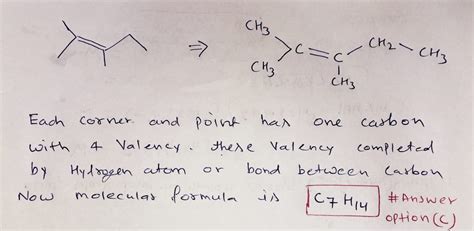 CH3
CH3
C=C
CH2-CH3
CH3
Each corner and point has one carbon
with 4 Valency. these Valency completed
by Hydrogen atom or bond between Carbon
Now molecular formula is C7H14 #Answer
option (C)